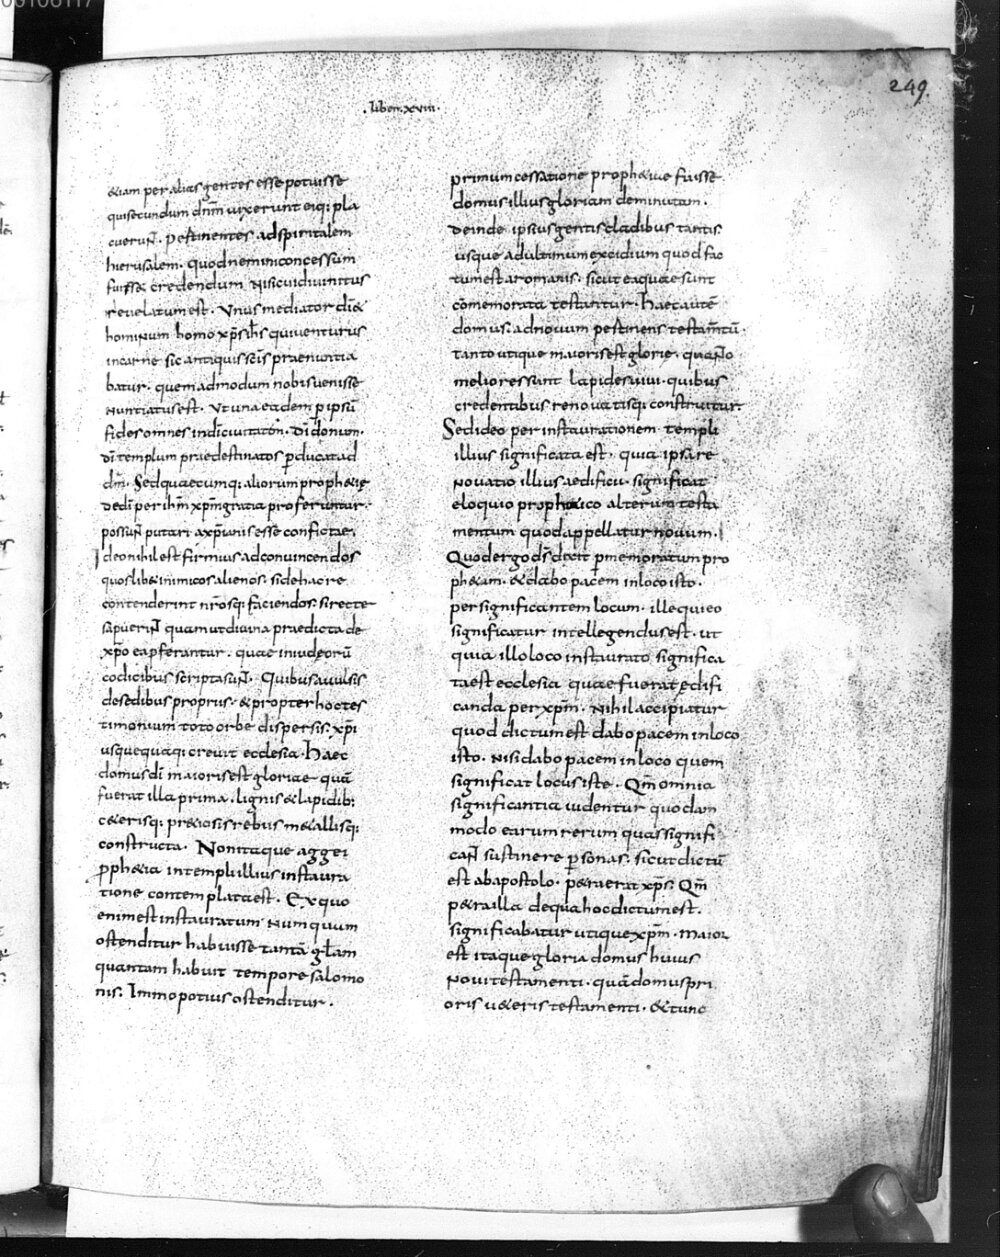 00106117
249.
.liber.xviii.
&iam per alias gentes esse potuisse
quisecundum dnm uixerunt eiq; pla
cuerunt. pertinentes adspiritalem
hierusalem. quodneminiconcessum
fuisse credendum nisicuidiuinitus
reuelatumest. Unus mediator di&
hominum homo xps ihs quiuenturus
incarne sic antiquis scis praenuntia
batur. quemadmodum nobis uenisse
nuntiatusest. Ut una eademq; p ipsu
fides omnes indi ciuitatem. di domum.
di templum praedestinatos pducat ad
dm. Sed quaecumq; aliorum proph&ie
dedi per ihm xpm gratia proferuntur.
possunt putari axpianis esse confictae.
Ideo nihil est firmius ad conuincendos
quoslib& inimicos alienos. si dehacre
contenderint nrosq; faciendos. si recte
sapuerint quam ut diuina praedicta de
xpo ea pferantur. quae iniudeoru
codicibus scripta sunt. Quibus auulsis
desedibus propriis. & propter hoc tes
timonium toto orbe dispersis. xpi
usquequaq; creuit ecclesia. Haec
domus di maioris est gloriae qua
fuerat illa prima. lignis & lapidib;
c&erisq; pr&iosis rebus m&allisq;
constructa. Non itaque aggei
pph&ia in templi illius instaura
tione contemplata est. Ex quo
enim est instauratum numquum
ostenditur habuisse tanta glam
quantam habuit tempore salomo
nis. Immo potius ostenditur.
primum cessatione proph&iae fuisse
domus illius gloriam deminutam.
deinde ipsius gentis cladibus tantis
usque adultimum excidium quod fac
tum est aromanis. sicut ea quae sunt
comemorata testantur. Haec aute
domus. adnouum pertinens testamtu.
tanto utique maioris est glorie. quanto
meliores sunt lapides uiui. quibus
credentibus renouatisq; construitur.
Sed ideo per instaurationem templi
illius significata est. quia ipsa re
nouatio illius aedificii. significat
eloquio proph&ico alterum testa
mentum quod appellatur nouum.
Quod ergo ds dicit p memoratum pro
ph&am. & dabo pacem inloco isto.
per significantem locum. ille qui eo
significatur intellegendus est. ut
quia illo loco instaurato significa
ta est ecclesia quae fuerat edifi
canda per xpm. Nihil accipiatur
quod dictum est dabo pacem inloco
isto. nisi dabo pacem inloco quem
significat locus iste. Qm omnia
significantia uidentur quodam
modo earum rerum quas signifi
cant sustinere psonas. sicut dictu
est abapostolo. p&ra erat xps. Qm
p&ra illa dequa hoc dictum est.
significabatur utique xpm. Maior
est itaque gloria domus huius
noui testamenti. qua domus pri
oris u&eris testamenti. & tunc